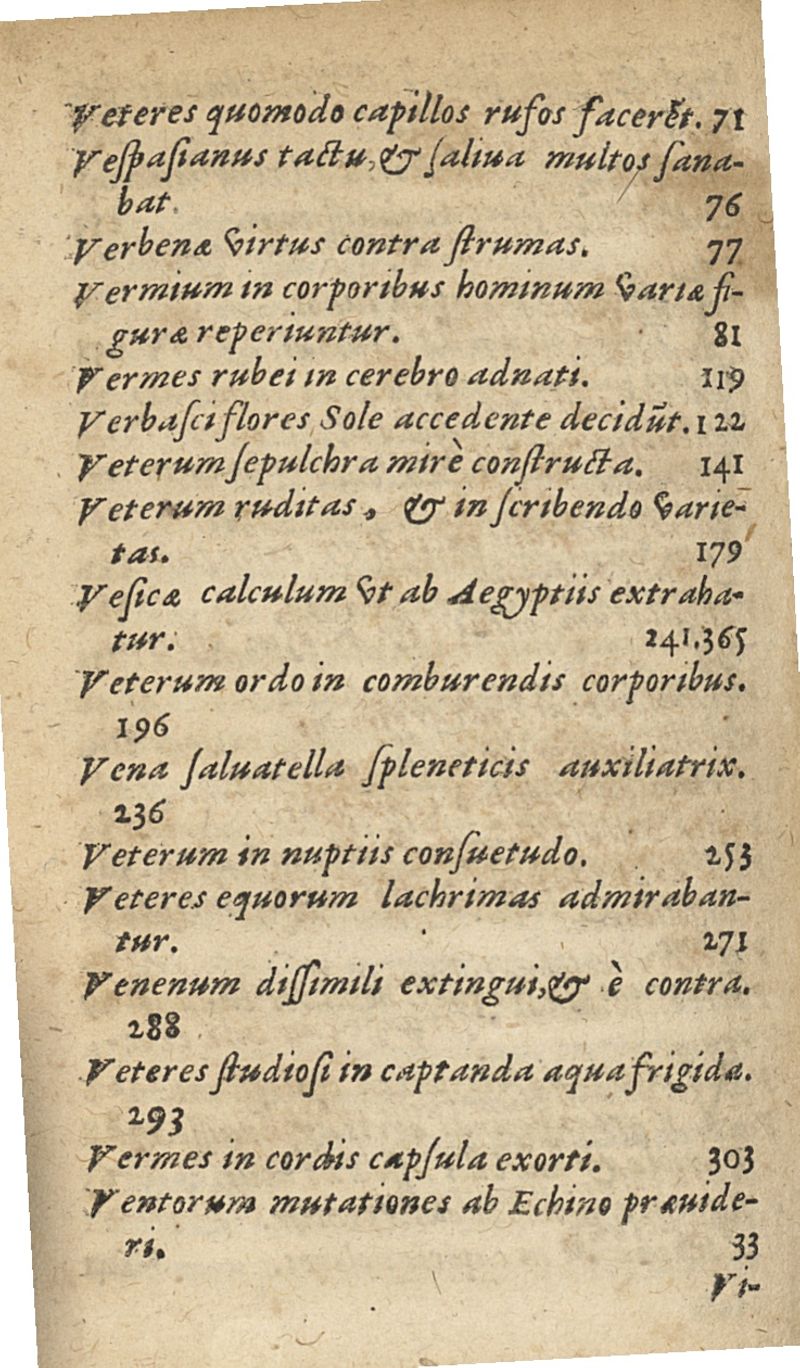 Veteres quomodo capillos rufos facerẽt. 71
Veſpaſianus tactu, & ſaliua multos ſana-
bat. 76
Verbenæ virtus contra ſtrumas. 77
Vermium in corporibus hominum variæ fi-
guræ reperiuntur. 81
Vermes rubei in cerebro adnati. 119
Verbaſci flores Sole accedente decidũt. 122
Veterum ſepulchra mirè conſtructa. 141
Veterum ruditas, & in ſcribendo varie-
tas. 179
Veſicæ calculum vt ab Aegyptiis extraha-
tur. 241.365
Veterum ordo in comburendis corporibus.
196
Vena ſaluatella ſpleneticis auxiliatrix.
236
Veterum in nuptiis conſuetudo. 253
Veteres equorum lachrimas admiraban-
tur. 271
Venenum diſſimili extingui, & è contra.
288
Veteres ſtudioſi in captanda aqua frigida.
293
Vermes in cordis capſula exorti. 303
Ventorum mutationes ab Echino præuide-
ri. 33
Vi-